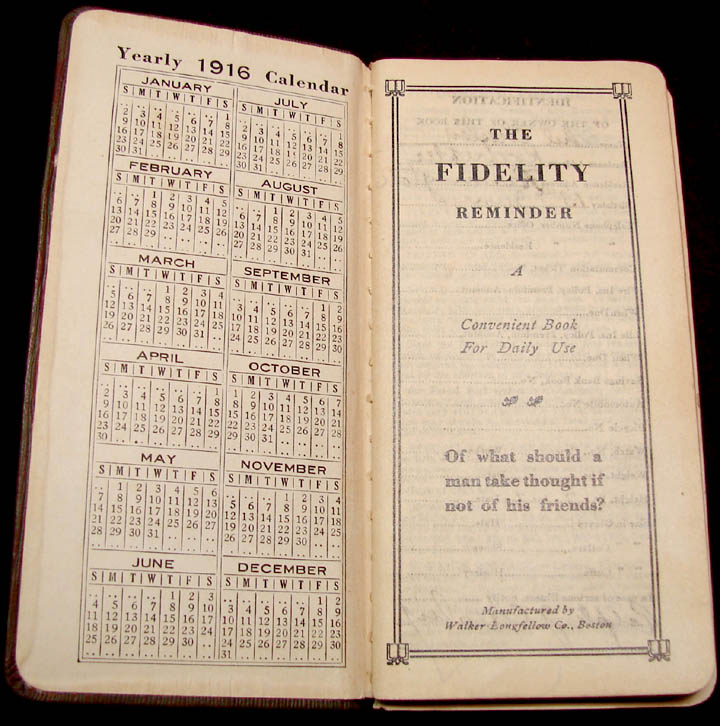 Yearly 1916 Calendar
JANUARY
S M T W T F S
1
2 3 4 5 6 7 8
9 10 11 12 13 14 15
16 17 18 19 20 21 22
23 24 25 26 27 28 29
30 31
FEBRUARY
S M T W T F S
1 2 3 4 5
6 7 8 9 10 11 12
13 14 15 16 17 18 19
20 21 22 23 24 25 26
27 28 29
MARCH
S M T W T F S
1 2 3 4
5 6 7 8 9 10 11
12 13 14 15 16 17 18
19 20 21 22 23 24 25
26 27 28 29 30 31
APRIL
S M T W T F S
1
2 3 4 5 6 7 8
9 10 11 12 13 14 15
16 17 18 19 20 21 22
23 24 25 26 27 28 29
30
MAY
S M T W T F S
1 2 3 4 5 6
7 8 9 10 11 12 13
14 15 16 17 18 19 20
21 22 23 24 25 26 27
28 29 30 31
JUNE
S M T W T F S
1 2 3
4 5 6 7 8 9 10
11 12 13 14 15 16 17
18 19 20 21 22 23 24
25 26 27 28 29 30
JULY
S M T W T F S
1
2 3 4 5 6 7 8
9 10 11 12 13 14 15
16 17 18 19 20 21 22
23 24 25 26 27 28 29
30 31
AUGUST
S M T W T F S
1 2 3 4 5
6 7 8 9 10 11 12
13 14 15 16 17 18 19
20 21 22 23 24 25 26
27 28 29 30 31
SEPTEMBER
S M T W T F S
1 2
3 4 5 6 7 8 9
10 11 12 13 14 15 16
17 18 19 20 21 22 23
24 25 26 27 28 29 30
OCTOBER
S M T W T F S
1 2 3 4 5 6 7
8 9 10 11 12 13 14
15 16 17 18 19 20 21
22 23 24 25 26 27 28
29 30 31
NOVEMBER
S M T W T F S
1 2 3 4
5 6 7 8 9 10 11
12 13 14 15 16 17 18
19 20 21 22 23 24 25
26 27 28 29 30
DECEMBER
S M T W T F S
1 2
3 4 5 6 7 8 9
10 11 12 13 14 15 16
17 18 19 20 21 22 23
24 25 26 27 28 29 30
31
THE
FIDELITY
REMINDER
A
Convenient Book
For Daily Use
Of what should a
man take thought if
not of his friends?
Manufactured by
Walker-Longfellow Co., Boston